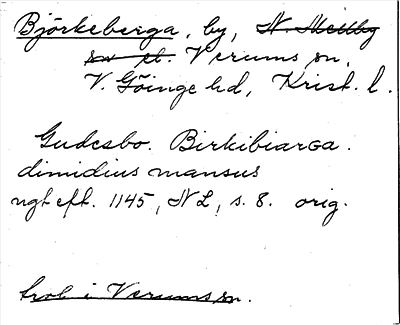 Björkeberga, by, N. Mellby
sn el. Verums sn,
V. Göinge hd, Krist. l.
Gudesbo. Birkibiarga.
dimidius mansus
ngt eft. 1145, NL, s. 8. orig.
trol. i Verums sn.